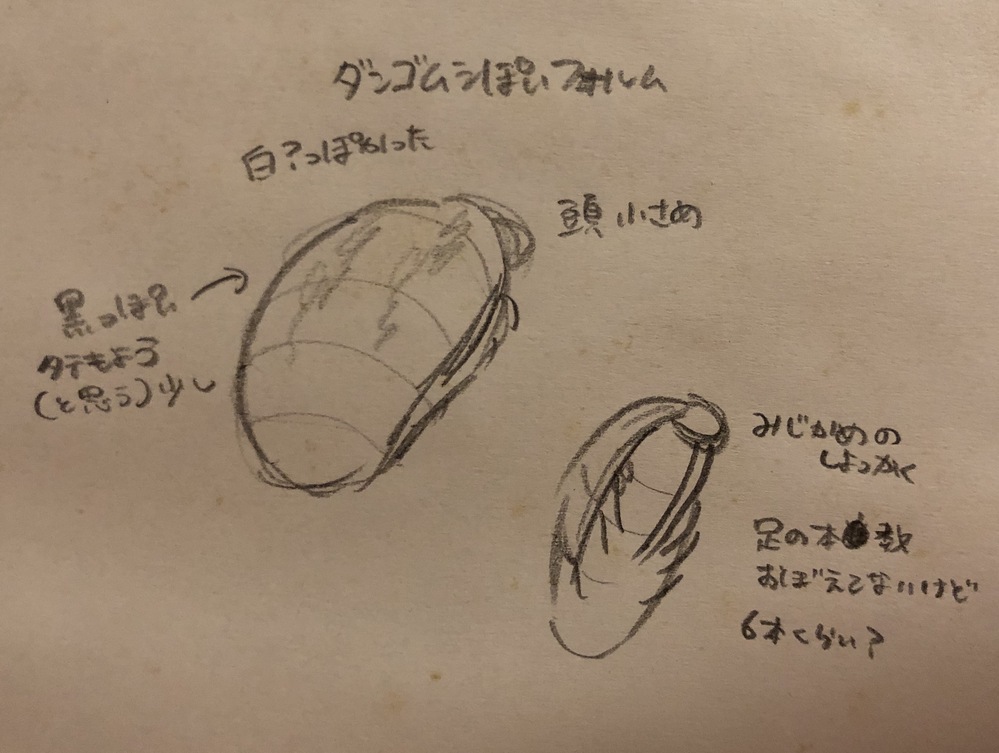 ダンゴムシぽいフォルム
白?っぽいった
頭 小さめ
黒っぽい
タテもよう
(と思う)少し
みじかめの
しょっかく
足の本数
おぼえてないけど
6本くらい?